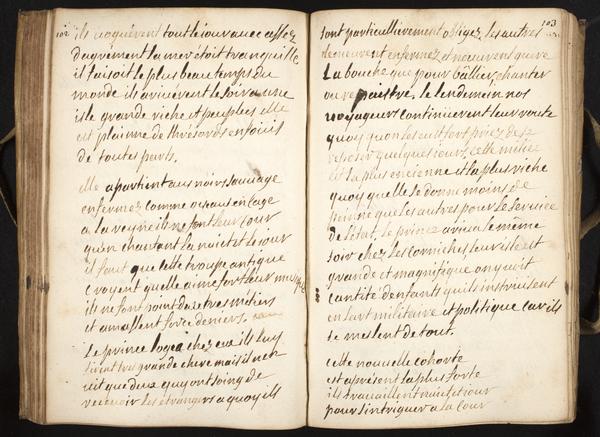 102
ils voguèrent tout le jour avec assez
dagrément la mer étoit tranquille
il faisoit le plus beau temps du
monde ils arriverent le soir a une
isle grande riche et peuplée elle
est plainne de thrésords enfouis
de toutes parts.
elle apartient aus noirs sauvage
enfermez comme oiseaus en cage
a la reyne ils ne font leur cour
qu'en chantant la nuict et le jour
il faut que cette troupe antique
croyent quelle aime fort leur musique
ils ne font point dautres métiers
et amassent force deniers.
Le prince logea chez eux ils luy
firent tres grande chere mais il ne
vit que deux quy ont soing de
recevoir les étrangers a quoy ils
103
sont particullierement obligez les autres
demeurent enfermez et n'ouvrent guere
La bouche que pour bâiller chanter
ou repaistre. le lendemain nos
voyageurs continuerent leur route
quoy quon les eut fort priez de se
reposer quelques jours cette
est la plus encienne et la plus riche
quoy quelle se donne moins de
peinne que les autres pour le service
de l'état, le prince ariva le même
soir chez les corniches leur isle est
grande et magnifique on y voit
cantité denfants quils instruisent
en lart militaire et politique car ils
se meslent de tout.
cette nouvelle cohorte
est a présent la plus forte
ils travaillent nuict et jour
pour s'intriguer a la Cour